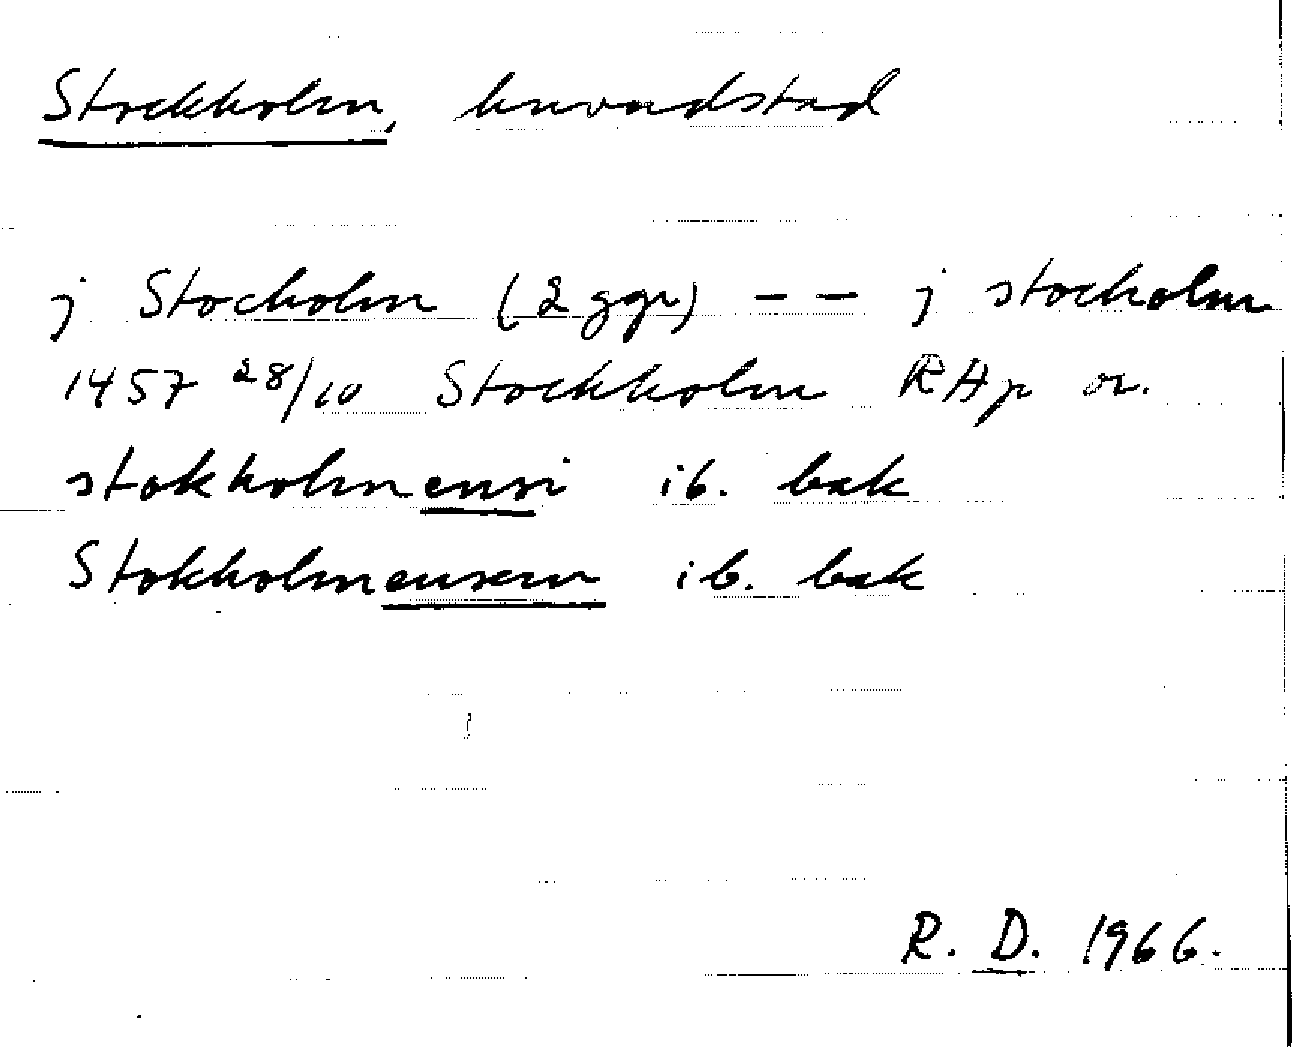 Stockholm, huvudstad
j Stocholm (2 ggr) -- j stocholm
1457 28/10 Stockholm RAp or.
stokholmensi ib. bak
Stokholmensem ib. bak
R. D. 1966.